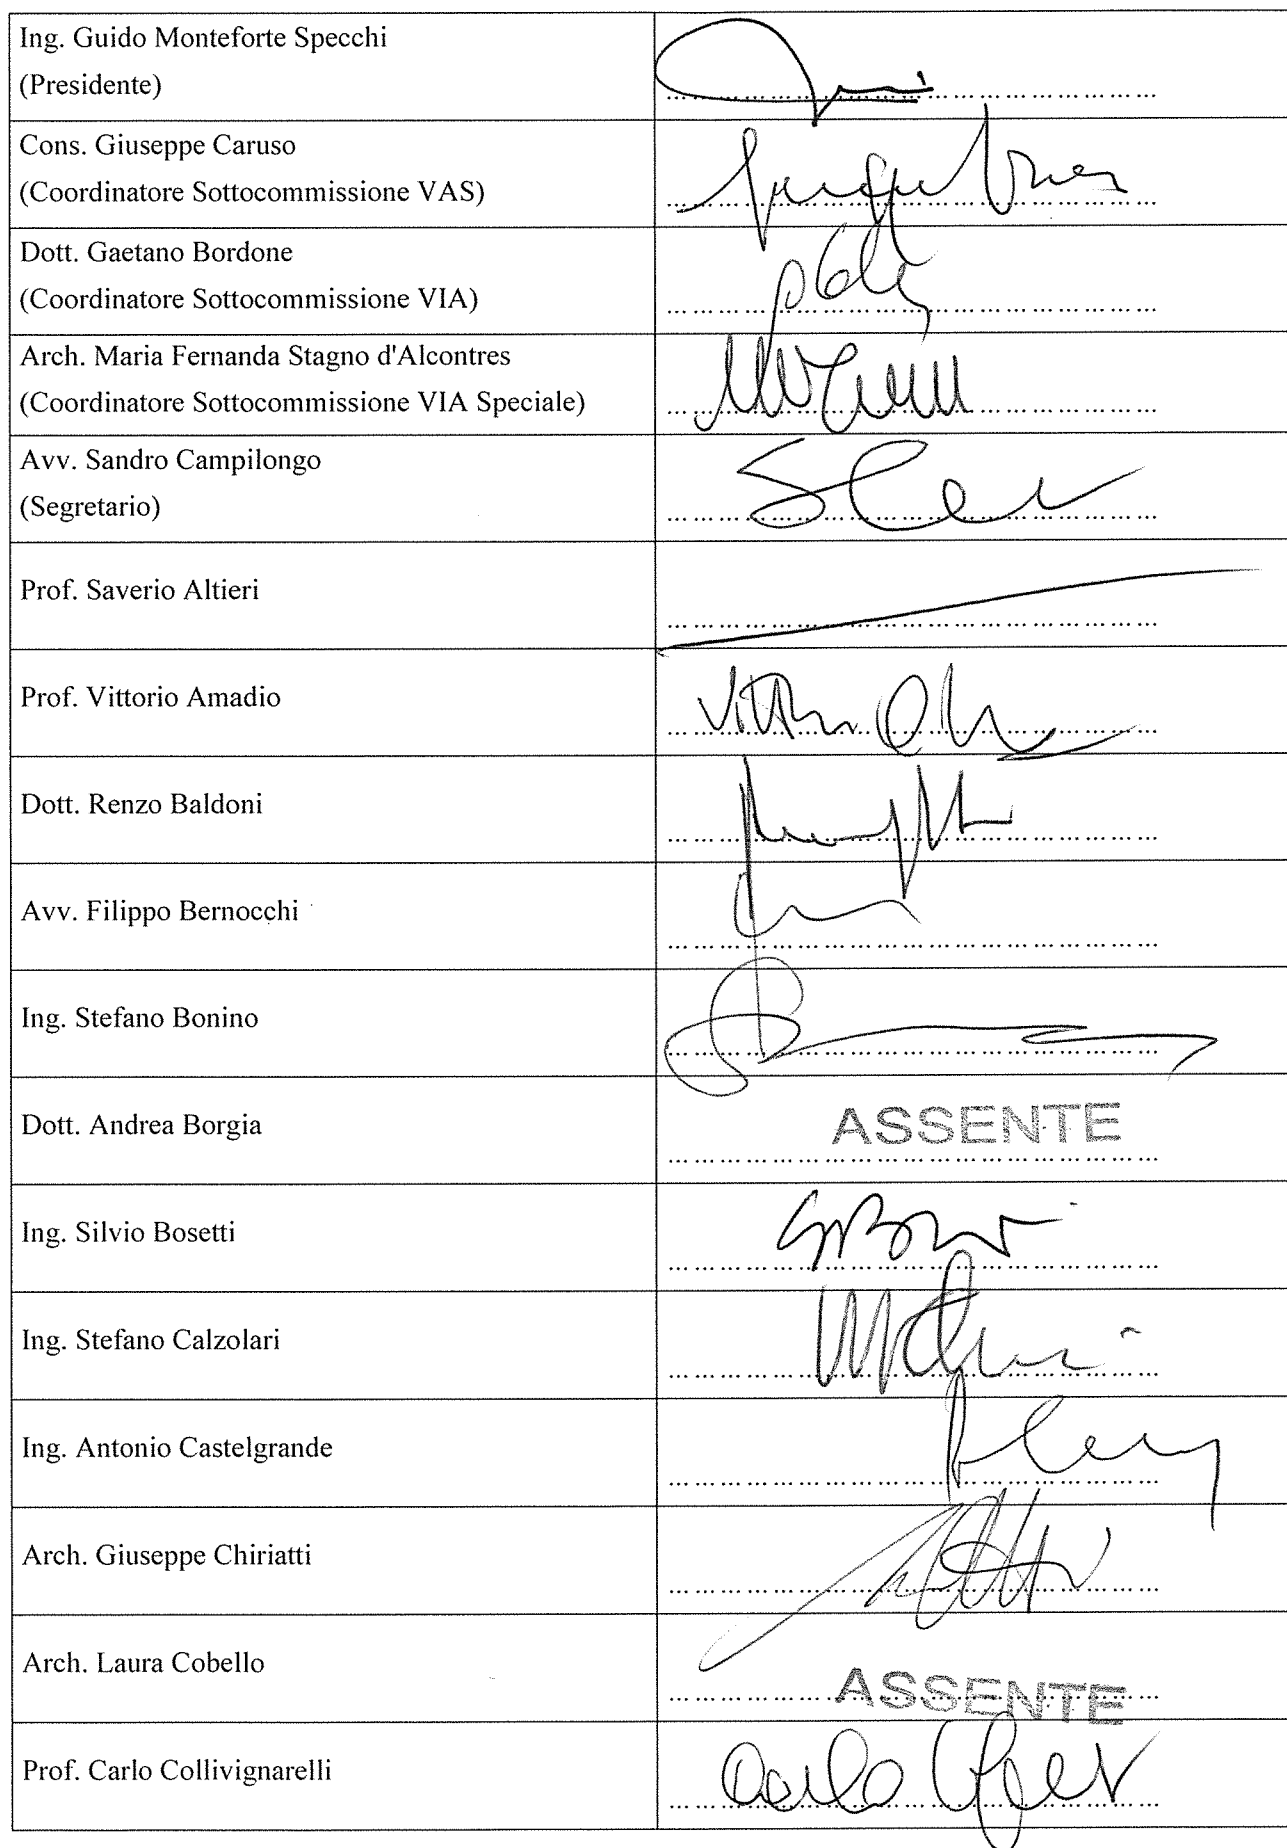 Ing. Guido Monteforte Specchi
(Presidente)
Cons. Giuseppe Caruso
(Coordinatore Sottocommissione VAS)
Dott. Gaetano Bordone
(Coordinatore Sottocommissione VIA)
Arch. Maria Fernanda Stagno d'Alcontres
(Coordinatore Sottocommissione VIA Speciale)
Avv. Sandro Campilongo
(Segretario)
Prof. Saverio Altieri
Prof. Vittorio Amadio
Dott. Renzo Baldoni
Avv. Filippo Bernocchi
Ing. Stefano Bonino
Dott. Andrea Borgia
ASSENTE
Ing. Silvio Bosetti
Ing. Stefano Calzolari
Ing. Antonio Castelgrande
Arch. Giuseppe Chiriatti
Arch. Laura Cobello
ASSENTE
Prof. Carlo Collivignarelli